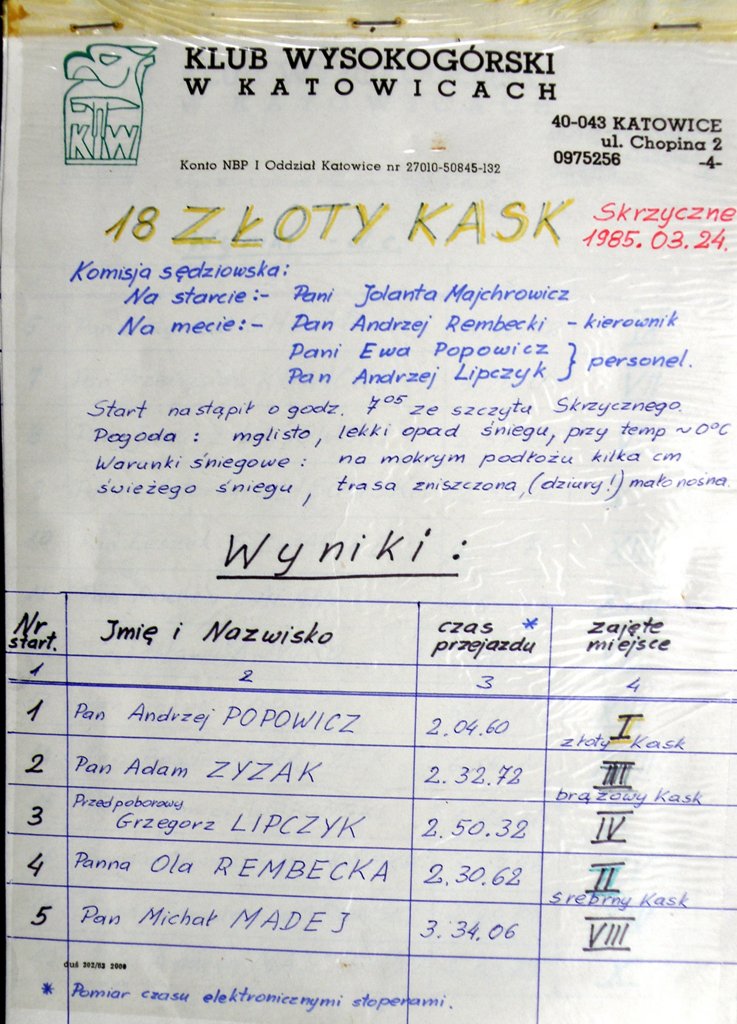 KLUB WYSOKOGÓRSKI
W KATOWICACH
KW
40-043 KATOWICE
ul. Chopina 2
0975256 -4-
Konto NBP I Oddział Katowice nr 27010-50845-132
18 ZŁOTY KASK
Skrzyczne
1985.03.24.
Komisja sędziowska:
Na starcie:- Pani Jolanta Majchrowicz
Na mecie:- Pan Andrzej Rembecki - kierownik
Pani Ewa Popowicz } personel.
Pan Andrzej Lipczyk
Start nastąpił o godz. 7⁰⁵ ze szczytu Skrzycznego.
Pogoda : mglisto, lekki opad śniegu, przy temp ~0°C
Warunki śniegowe : na mokrym podłożu kilka cm
świeżego śniegu, trasa zniszczona, (dziury!) mało nośna.
Wyniki:
Nr start. Imię i Nazwisko czas przejazdu * zajęte miejsce
1 2 3 4
1 Pan Andrzej POPOWICZ 2.04.60 I złoty Kask
2 Pan Adam ZYZAK 2.32.72 III brązowy Kask
3 Przedpoborowy Grzegorz LIPCZYK 2.50.32 IV
4 Panna Ola REMBECKA 2.30.62 II srebrny Kask
5 Pan Michał MADEJ 3.34.06 VIII
duś 302/83 2000
* Pomiar czasu elektronicznymi stoperami.